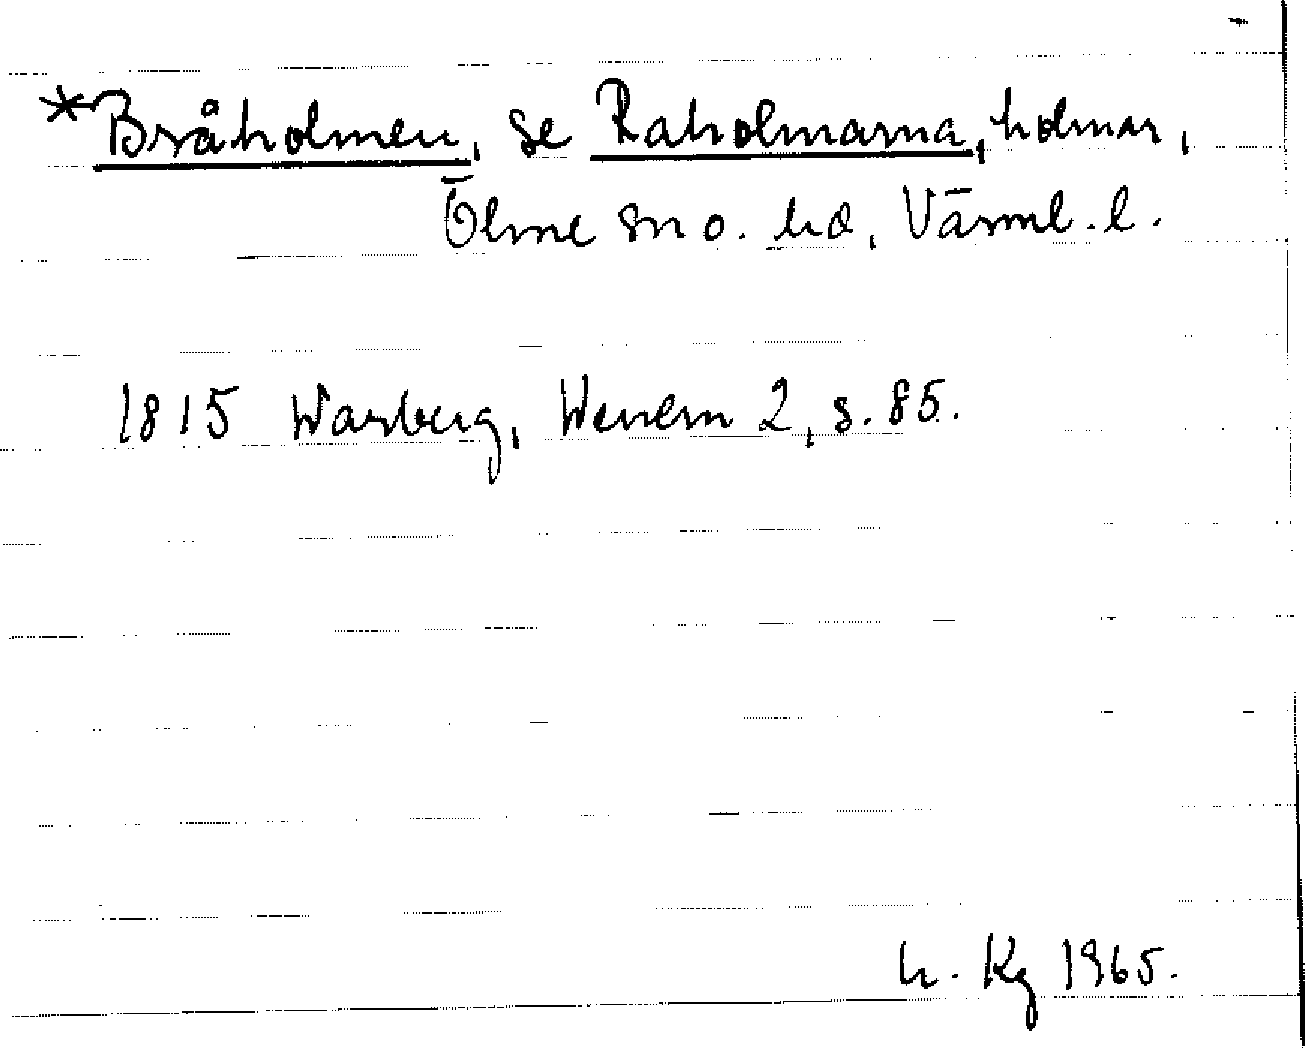 *Bråholmen, se Raholmarna, holmar,
Ölme sn o. hd, Värml. l.
1815 Warberg, Wenern 2, s. 85.
h. Kg 1965.